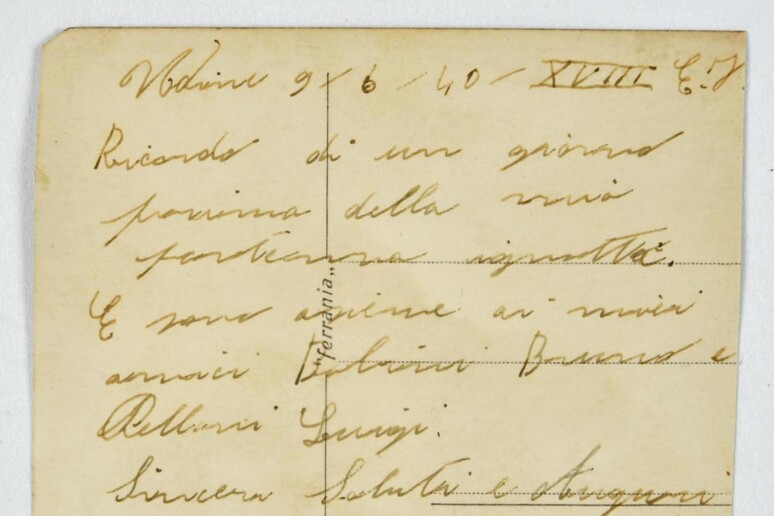 Udine 9/6/40 - XVIII E.F.
Ricordo di un giorno
prima della mia
partenna ignotta.
E sono asieme ai miei
amici Fabrini Bruno e
Pelloni Luigi.
Sincera Saluti e Auguri
"ferrania"